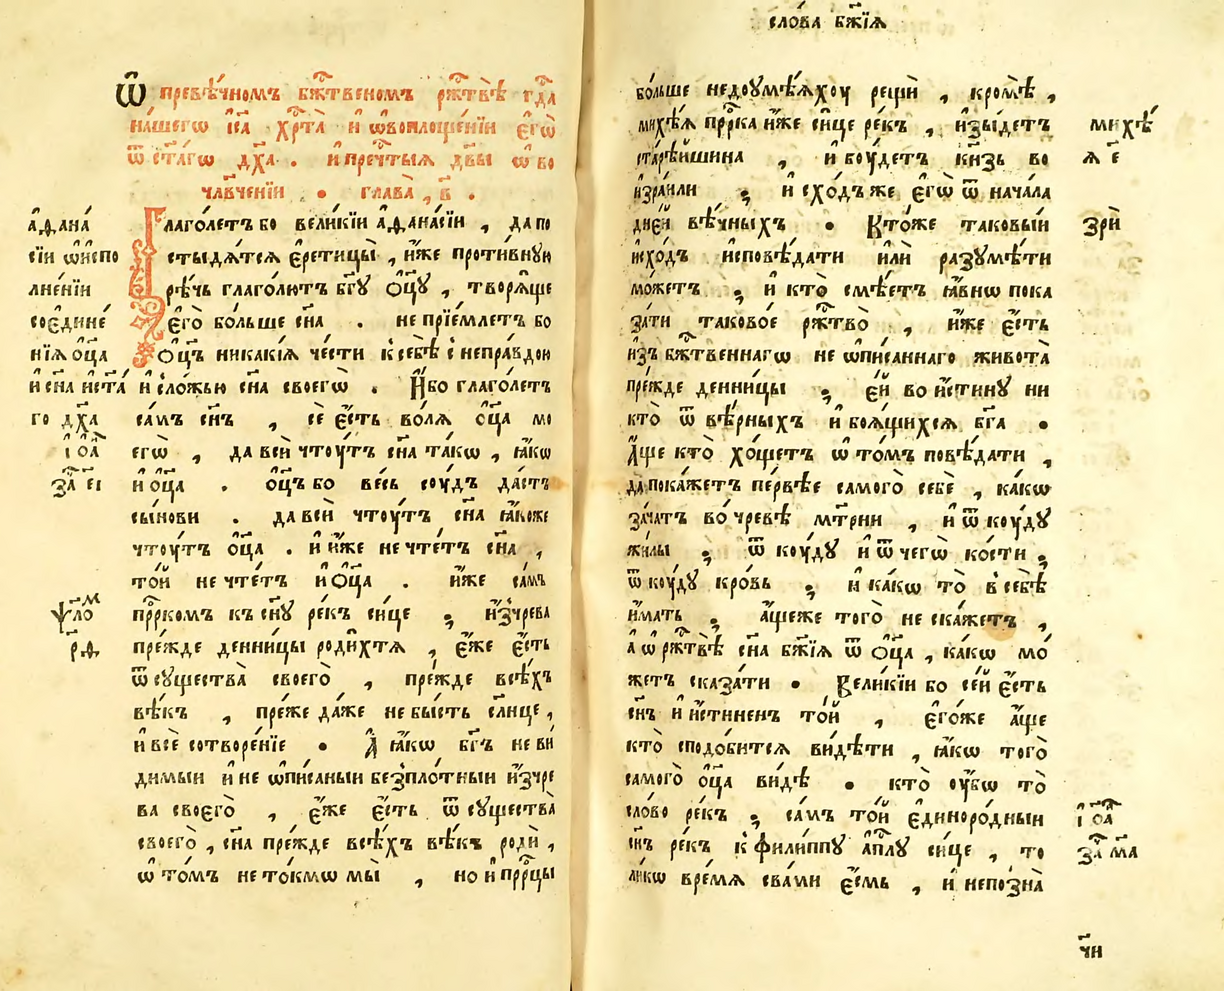 Ѿ превѣ́чномъ бж҃твеномъ рж҃твѣ̀ гд҃а
на́шегѡ і҆с҃а хр҃та̀ и҆ ѡ҆воплоще́нїи є҆гѡ̀
ѿ ст҃а́гѡ дх҃а . и҆ пречт҃ыѧ дв҃ы ѡ҆ во
чл҃вче́нїи • глава̀ , в҃ .
Глаго́летъ бо вели́кїи а҆ѳана́сїи , да по
стыдѧ́тсѧ є҆ретицы̀ , и҆́же проти́вную
рѣ́чь глаго́лютъ бг҃ѹ ѻ҆ц҃ѹ , творѧ́ще
є҆го̀ бо́льше сн҃а . не прїе́млетъ бо
ѻ҆ц҃ъ никакі́ѧ че́сти к̾ себѣ̀ с̾ непра́вдою
и҆ сло́жью сн҃а своегѡ̀ . И҆́бо глаго́летъ
са́мъ сн҃ъ , сѐ є҆́сть во́лѧ ѻ҆ц҃а мо
егѡ̀ , да всѝ чтоу́тъ сн҃а та́кѡ , ꙗ҆́кѡ
и҆ ѻ҆ц҃а . ѻ҆ц҃ъ бо весь соу́дъ да́стъ
сы́нови . да всѝ чтоу́тъ сн҃а ꙗ҆́коже
чтоу́тъ ѻ҆ц҃а . и҆ и҆́же не чте́тъ сн҃а ,
то́й не чте́тъ и҆ ѻ҆ц҃а . и҆́же са́мъ
прⷪ҇ркомъ къ сн҃ѹ ре́къ си́це ; и҆зчре́ва
пре́жде денни́цы роди́хтѧ , є҆́же є҆́сть
ѿ сѹщества̀ своего̀ , пре́жде всѣ́хъ
вѣ́къ , пре́же да́же не бы́сть сл҃нце ,
и҆ всѐ сотворе́нїе • А҆ ꙗ҆́кѡ бг҃ъ неви
димыи и҆ не ѡ҆пи́саныи безпло́тныи и҆зчре
ва своегѡ̀ , є҆́же є҆́сть ѿ сѹщества̀
своего̀ , сн҃а пре́жде всѣ́хъ вѣ́къ родѝ ,
ѡ҆ то́мъ не то́кмѡ мы̀ , но и҆ прⷪ҇рцы
а҆ѳана́
сїи ѡ҆и҆спо
лне́нїи
соє҆дине́
нїѧ ѻ҆ц҃а
и҆ сн҃а и҆ ст҃а́
го дх҃а
і҆оа҃
за҃ еі
ѱало́м
р҃ѳ
сло́ва бж҃їѧ
бо́льше недоумѣ́ѧхоу рещѝ , кромѣ̀ ,
михѣ́ѧ прⷪ҇рка и҆́же си́це ре́къ , и҆зы́детъ
старѣ́йшина , и҆ боу́детъ кнѧ́зь во
и҆зра́или ; и҆ схо́дъ же є҆гѡ̀ ѿ нача́ла
дне́й вѣ́чныхъ • Кто́же таковы́и
и҆схо́дъ и҆сповѣ́дати и҆лѝ разумѣ́ти
мо́жетъ ; и҆ кто̀ смѣ́етъ ꙗ҆́внѡ пока
за́ти таково́е рж҃тво̀ , и҆́же є҆́сть
и҆зъ бж҃твеннагѡ не ѡ҆пи́саннаго живота̀
пре́жде денни́цы ; є҆́й во и҆́стинѹ ни
кто̀ ѿ вѣ́рныхъ и҆ боѧ́щихсѧ бг҃а •
А҆́ще кто̀ хо́щетъ ѡ҆ то́мъ повѣ́дати ,
да пока́жетъ пе́рвѣе самого̀ себѐ , ка́кѡ
зача́тъ во чре́вѣ мт҃рни , и҆ ѿ коу́дѹ
жи́лы ; ѿ коу́дѹ и҆ ѿ чегѡ̀ ко́сти ;
ѿ коу́дѹ кро́вь ; и҆ ка́кѡ то̀ в̾ себѣ̀
и҆́мать ; а҆́щеже того̀ не ска́жетъ ,
а҆ ѡ҆ рж҃твѣ̀ сн҃а бж҃їѧ ѿ ѻ҆ц҃а , ка́кѡ мо́
жетъ сказа́ти • Вели́кїи бо се́й є҆́сть
сн҃ъ и҆ и҆́стиненъ то́й , є҆го́же а҆́ще
кто̀ сподо́битсѧ ви́дѣти , ꙗ҆́кѡ того̀
самого̀ ѻ҆ц҃а ви́дѣ • кто̀ оу҆́бѡ то̀
сло́во ре́къ ; са́мъ то́й є҆диноро́дныи
сн҃ъ ре́къ к̾ фили́ппѹ а҆п҃лѹ си́це , то
ли́кѡ вре́мѧ сва́ми є҆́смь , и҆ непозна̀
михѣ́
ѧ е҃
зрѝ
і҆оа҃
за҃ ма
ч҃и